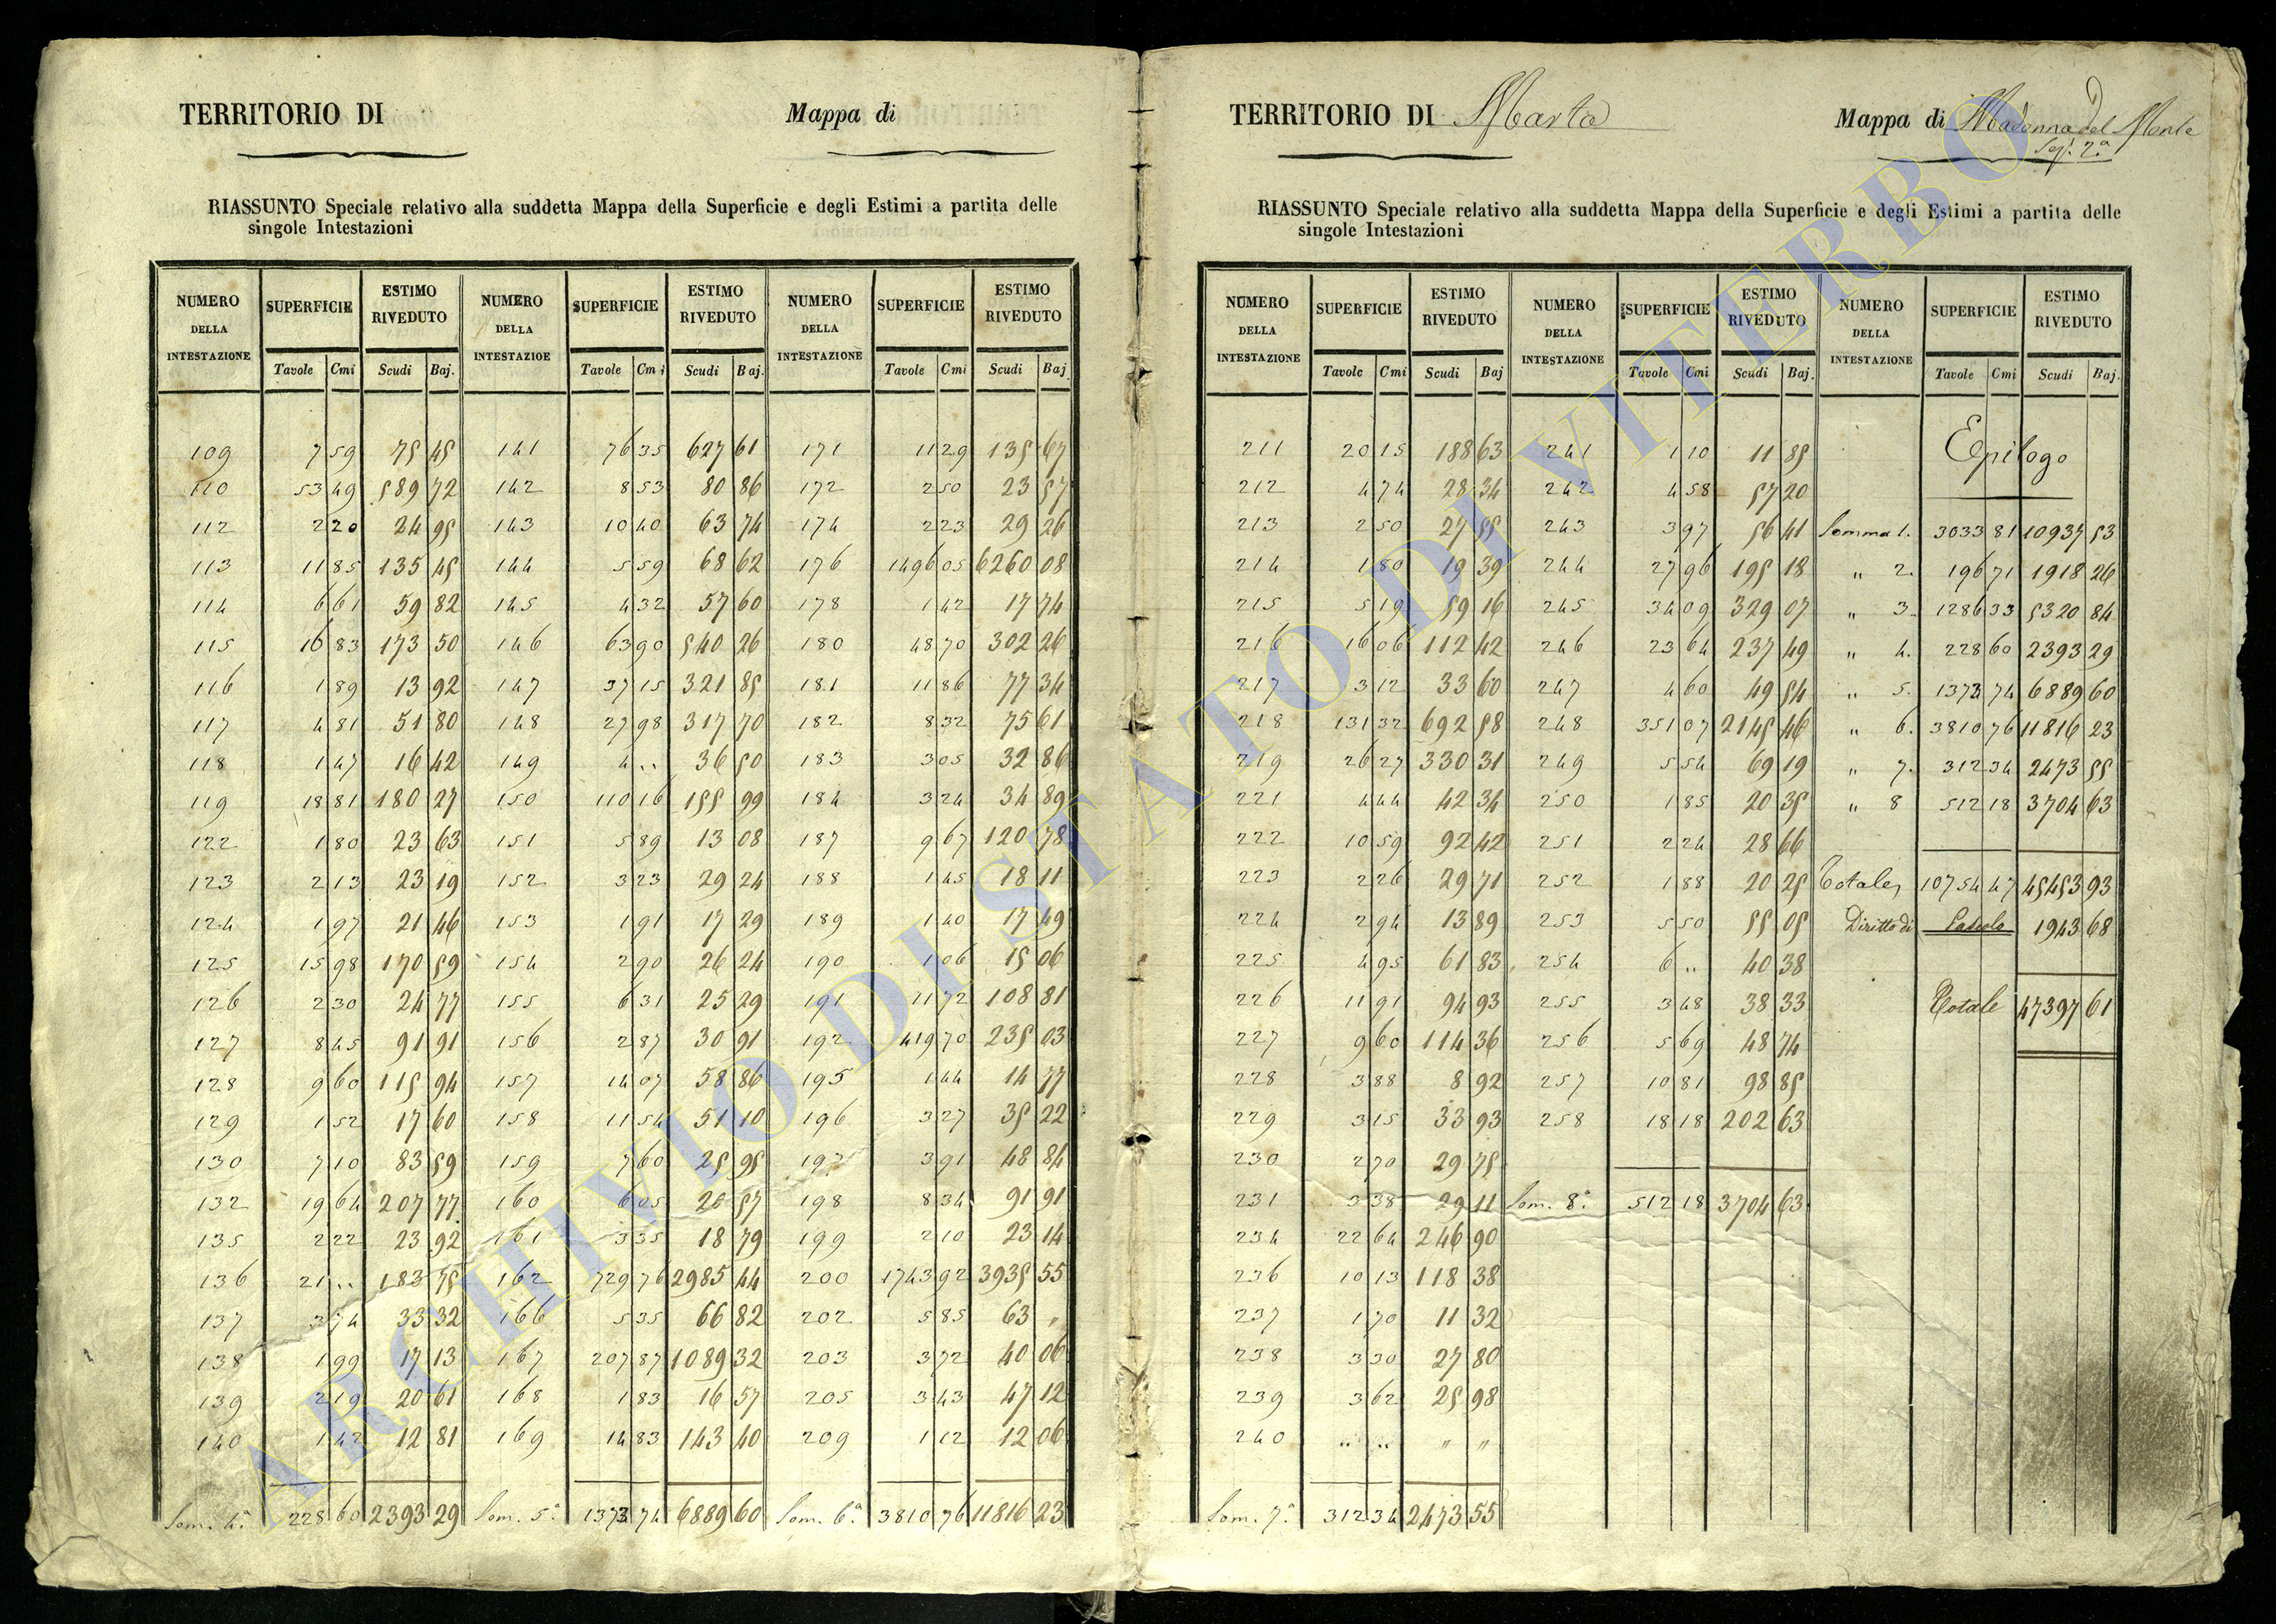 TERRITORIO DI Mappa di
RIASSUNTO Speciale relativo alla suddetta Mappa della Superficie e degli Estimi a partita delle
singole Intestazioni
NUMERO DELLA INTESTAZIONE SUPERFICIE ESTIMO RIVEDUTO NUMERO DELLA INTESTAZIOE SUPERFICIE ESTIMO RIVEDUTO NUMERO DELLA INTESTAZIONE SUPERFICIE ESTIMO RIVEDUTO
Tavole Cmi Scudi Baj. Tavole Cmi Scudi Baj. Tavole Cmi Scudi Baj.
109 7 59 75 45 141 76 35 627 61 171 11 29 135 67
110 53 49 589 72 142 8 53 80 86 172 2 50 23 57
112 2 20 24 95 143 10 40 63 74 174 2 23 29 26
113 11 85 135 45 144 5 59 68 62 176 1496 05 6260 08
114 6 61 59 82 145 4 32 57 60 178 1 42 17 74
115 16 83 173 50 146 63 90 540 26 180 48 70 302 26
116 1 89 13 92 147 37 15 321 85 181 11 86 77 34
117 4 81 51 80 148 27 98 317 70 182 8 32 75 61
118 1 47 16 42 149 4 .. 36 50 183 3 05 32 86
119 18 81 180 27 150 110 16 155 99 184 3 24 34 89
122 1 80 23 63 151 5 89 13 08 187 9 67 120 78
123 2 13 23 19 152 3 23 29 24 188 1 45 18 11
124 1 97 21 46 153 1 91 17 29 189 1 40 17 49
125 15 98 170 59 154 2 90 26 24 190 1 06 15 06
126 2 30 24 77 155 6 31 25 29 191 11 72 108 81
127 8 45 91 91 156 2 87 30 91 192 419 70 235 03
128 9 60 115 94 157 14 07 58 86 195 1 44 14 77
129 1 52 17 60 158 11 54 51 10 196 3 27 35 22
130 7 10 83 59 159 7 60 25 95 197 3 91 48 84
132 19 64 207 77 160 6 05 20 57 198 8 34 91 91
135 2 22 23 92 161 3 35 18 79 199 2 10 23 14
136 21 .. 183 75 162 729 76 2985 44 200 1743 92 3935 55
137 3 74 33 32 166 5 35 66 82 202 5 85 63 "
138 1 99 17 13 167 207 87 1089 32 203 3 72 40 06
139 2 19 20 61 168 1 83 16 57 205 3 43 47 12
140 1 42 12 81 169 14 83 143 40 209 1 12 12 06
Som. 4.ª 228 60 2393 29 Som. 5.ª 1373 74 6889 60 Som. 6.ª 3810 76 11816 23
TERRITORIO DI Marta Mappa di Madonna del Monte
Sez. 2.ª
RIASSUNTO Speciale relativo alla suddetta Mappa della Superficie e degli Estimi a partita delle
singole Intestazioni
NUMERO DELLA INTESTAZIONE SUPERFICIE ESTIMO RIVEDUTO NUMERO DELLA INTESTAZIONE SUPERFICIE ESTIMO RIVEDUTO NUMERO DELLA INTESTAZIONE SUPERFICIE ESTIMO RIVEDUTO
Tavole Cmi Scudi Baj Tavole Cmi Scudi Baj. Tavole Cmi Scudi Baj.
211 20 15 188 63 241 1 10 11 85 Epilogo
212 4 74 28 34 242 4 58 57 20
213 2 50 27 55 243 3 97 56 41 Somma 1. 3033 81 10937 53
214 1 80 19 39 244 27 96 195 18 " 2. 196 71 1918 26
215 5 19 59 16 245 34 09 329 07 " 3. 1286 33 5320 84
216 16 06 112 42 246 23 64 237 49 " 4. 228 60 2393 29
217 3 12 33 60 247 4 60 49 54 " 5. 1373 74 6889 60
218 131 32 692 58 248 351 07 2145 46 " 6. 3810 76 11816 23
219 26 27 330 31 249 5 54 69 19 " 7. 312 34 2473 55
221 4 44 42 34 250 1 85 20 35 " 8 512 18 3704 63
222 10 59 92 42 251 2 24 28 66
223 2 26 29 71 252 1 88 20 25 Totale, 10754 47 45453 93
224 2 94 13 89 253 5 50 55 05 Diritto di Pascolo 1943 68
225 4 95 61 83 254 6 .. 40 38
226 11 91 94 93 255 3 48 38 33 Totale 47397 61
227 9 60 114 36 256 5 69 48 74
228 3 88 8 92 257 10 81 98 85
229 3 15 33 93 258 18 18 202 63
230 2 70 29 75
231 3 38 29 11 Som. 8.ª 512 18 3704 63
234 22 64 246 90
236 10 13 118 38
237 1 70 11 32
238 3 30 27 80
239 3 62 25 98
240 .. .. " "
Som. 7.ª 312 34 2473 55
ARCHIVIO DI STATO DI VITERBO